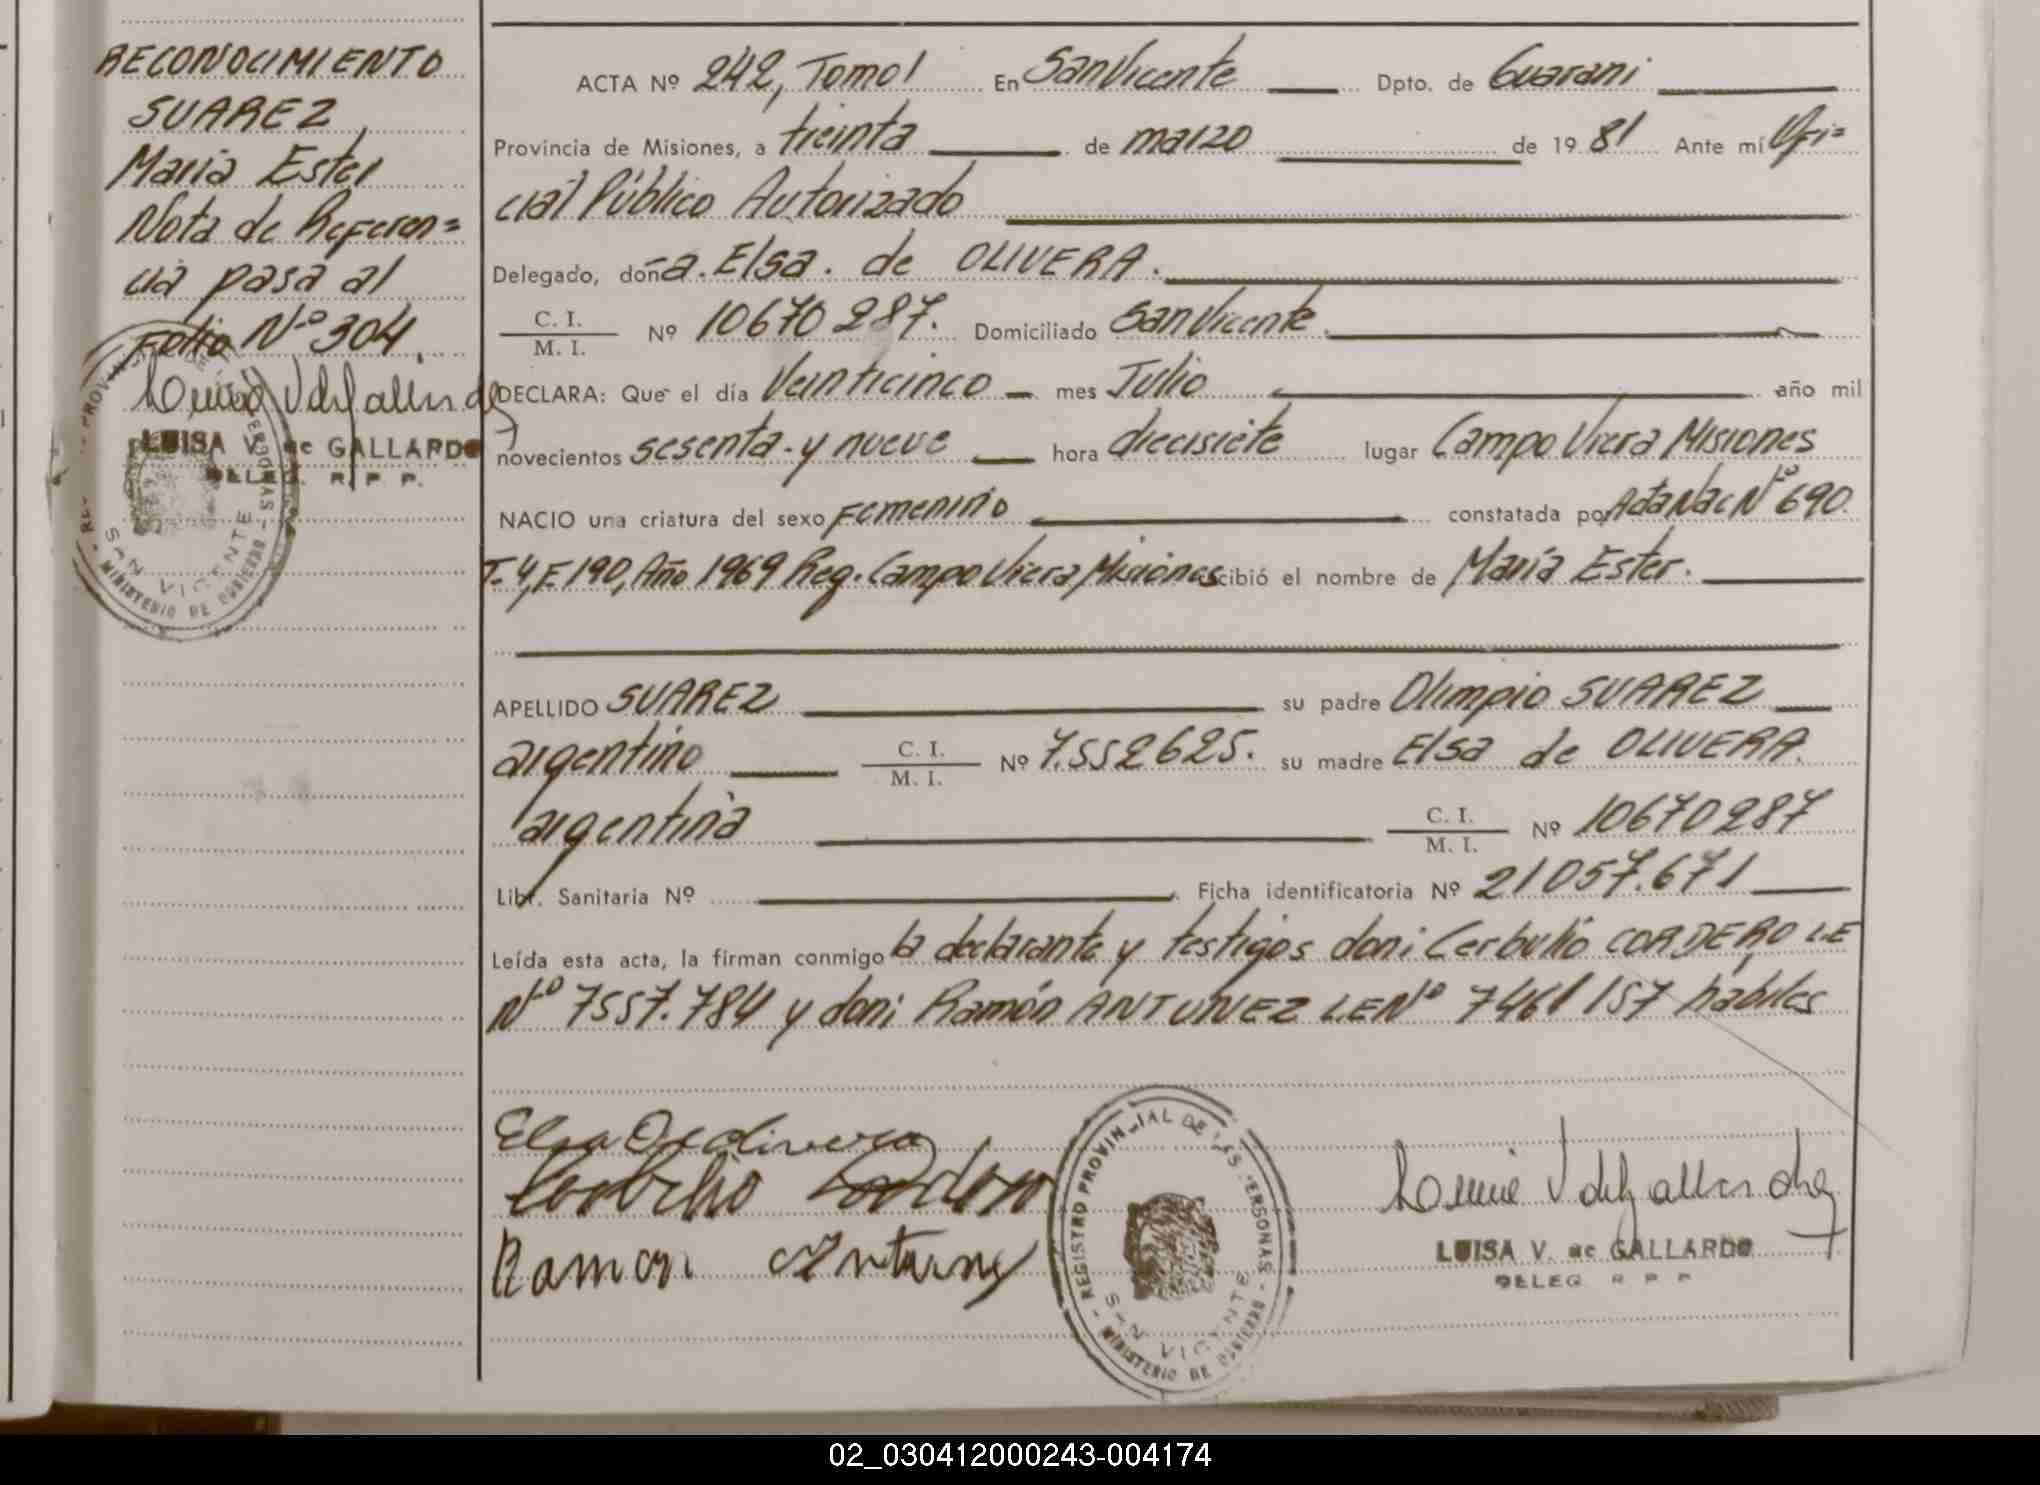 RECONOCIMIENTO
SUAREZ
María Ester
Nota de Referen=
cia pasa al
Folio Nº 304.
LUISA V. de GALLARDO
DELEG. R. P. P.
SAN VICENTE
MINISTERIO DE GOBIERNO
ACTA Nº 242, Tomo I En San Vicente Dpto. de Guaraní
Provincia de Misiones, a treinta de marzo de 1981 Ante mí Ofi=
cial Público Autorizado
Delegado, doña. Elsa. de OLIVERA.
C. I.
M. I. Nº 10670287. Domiciliado San Vicente.
DECLARA: Que el día Veinticinco mes Julio año mil
novecientos sesenta y nueve hora diecisiete lugar Campo Viera Misiones
NACIO una criatura del sexo Femenino constatada por Acta Nac Nº 690
T. 4, F 190, Año 1969 Reg. Campo Viera, Misiones recibió el nombre de María Ester.
APELLIDO SUAREZ su padre Olimpio SUAREZ
argentino C. I.
M. I. Nº 7.552625. su madre Elsa de OLIVERA.
argentina C. I.
M. I. Nº 10670287
Libr. Sanitaria Nº Ficha identificatoria Nº 21057.671
Leída esta acta, la firman conmigo la declarante y testigos don: Cerbulio CORDERO, L.E
Nº 7557.784 y don: Ramón ANTUNEZ L.E Nº 7461157 habiles
Elsa De olivera
Ramon Antunez
REGISTRO PROVINCIAL DE LAS PERSONAS
SAN VICENTE
MINISTERIO DE GOBIERNO
LUISA V. de GALLARDO
DELEG. R. P. P.
02_030412000243-004174